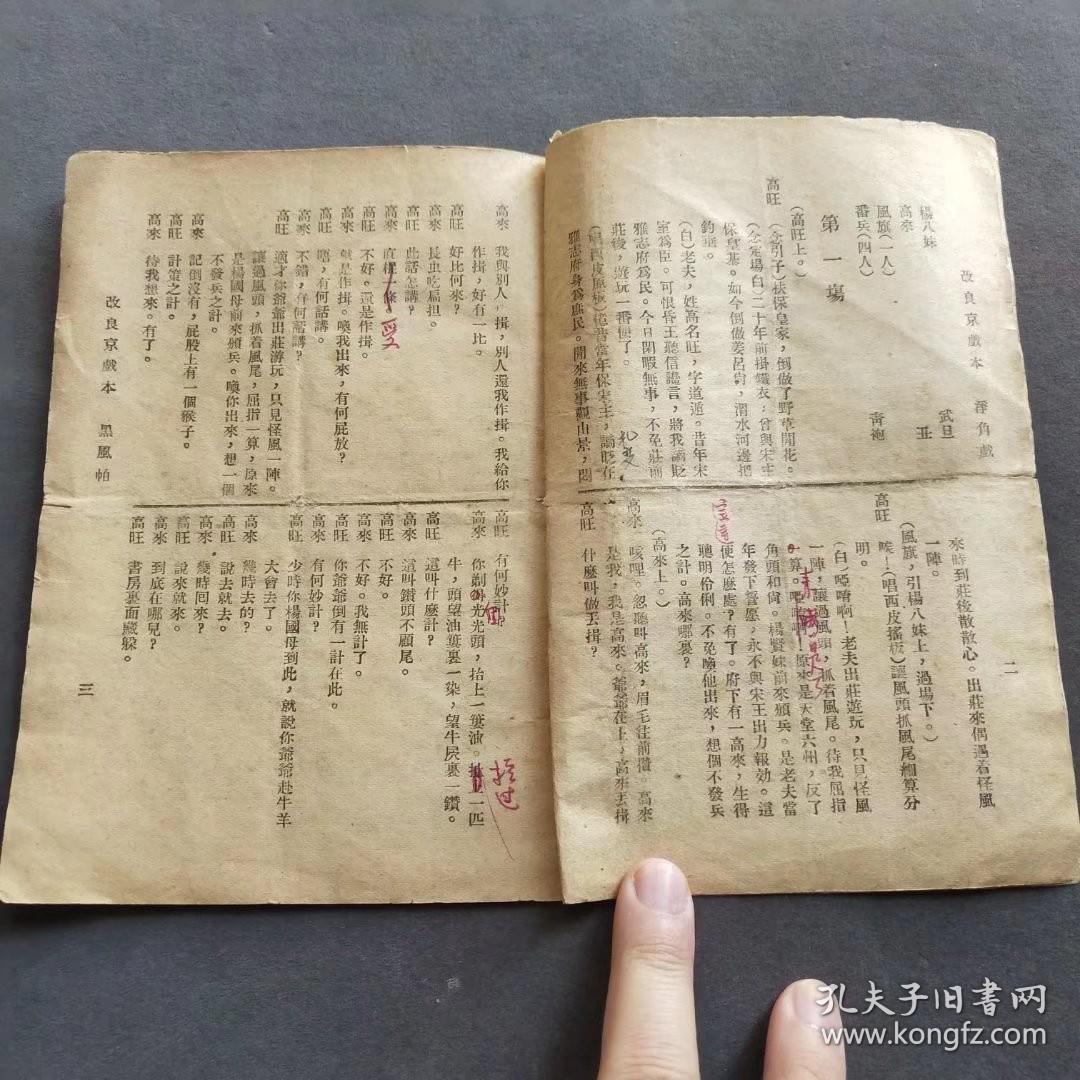 改良京戲本　淨角戲
楊八妹　武旦
高來　丑
風旗(一人)　青袍
番兵(四人)
第一場
(高旺上。)
高旺　(念引子)扶保皇家，倒做了野草開花。
(念定場白)二十年前掛鐵衣，曾與宋主
保皇基。如今倒做姜呂尚，渭水河邊把
釣垂。
(白)老夫，姓高名旺，字道遁。昔年宋
室爲臣。可恨昏王聽信讒言，將我謫貶
雅志府爲民。今日閑暇無事，不免莊前
莊後，遊玩一番便了。
(唱西皮原板)憶昔當年保宋主，謫貶在
雅志府身爲庶民。閑來無事觀山景，悶
來時到莊後散散心。出莊來偶遇着怪風
一陣。
(風旗，引楊八妹上，過場下。)
高旺　唉！(唱西皮搖板)讓風頭抓風尾細算分
明。
(白)啞唷啊！老夫出莊遊玩，只見怪風
一陣，讓過風頭，抓着風尾。待我屈指
一算。原來是天堂六州，反了
角頭和尚。楊賢妹前來頒兵。是老夫當
年發下誓愿，永不與宋王出力報効。這
便怎么處？有了。府下有一高來，生得
聰明伶俐。不免喚他出來，想個不發兵
之計。高來哪裏？
(高來上。)
高來　咳哩。忽聽叫高來，眉毛往前攢。高來
是我，我是高來。爺爺在上，高來丟揖
高旺　什麽叫做丟揖？
二
高來　我與別人揖，別人還我作揖。我給你
作揖，好有一比。
高旺　好比何來？
高來　長虫吃扁担。
高旺　此話怎講？
高來　直
受
高旺　不好。還是作揖。
高來　就是作揖。喚我出來，有何屁放？
高旺　唔，有何話講。
高來　不錯，有何話講？
高旺　適才你爺爺出莊游玩，只見怪風一陣。
讓過風頭，抓着風尾，屈指一算，原來
是楊國母前來頒兵。喚你出來，想一個
不發兵之計。
高來　記倒沒有，屁股上有一個猴子。
高旺　計策之計。
高來　待我想來。有了。
高旺　有何妙計？
高來　你剃光光頭，抬上一簍油。一匹
牛，頭望油簍裏一染，望牛屄裏一鑽。
高旺　這叫什麽計？
高來　這叫鑽頭不顧尾。
高旺　不好。
高來　不好。我無計了。
高旺　你爺爺倒有一計在此。
高來　有何妙計？
高旺　少時你楊國母到此，就說你爺爺赴牛羊
大會去了。
高來　幾時去的？
高旺　說去就去。
高來　幾時回來？
高旺　說來就來。
高來　到底在哪兒？
高旺　書房裏面藏躲。
改良京戲本　黑風帕
三
孔夫子旧書网
www.kongfz.com